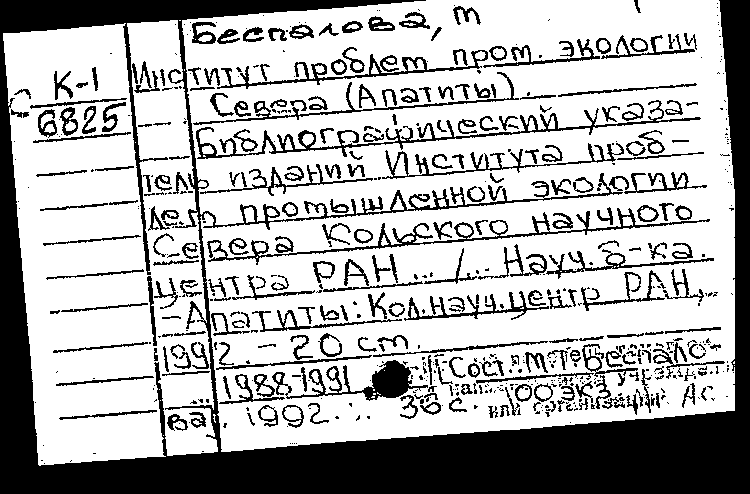 Беспалова, М
К-1
6825
Институт проблем пром. экологии
Севера (Апатиты).
Библиографический указа-
тель изданий Института проб-
лем промышленной экологии
Севера Кольского научного
центра РАН ... /... Науч. б-ка.
-Апатиты: Кол. науч. центр РАН,
1992. - 20 cm.
... 1988-1991 [Сост.: М.Т. Беспало-
ва]. 1992. ... 36 с. 100 экз.
или организации Ас